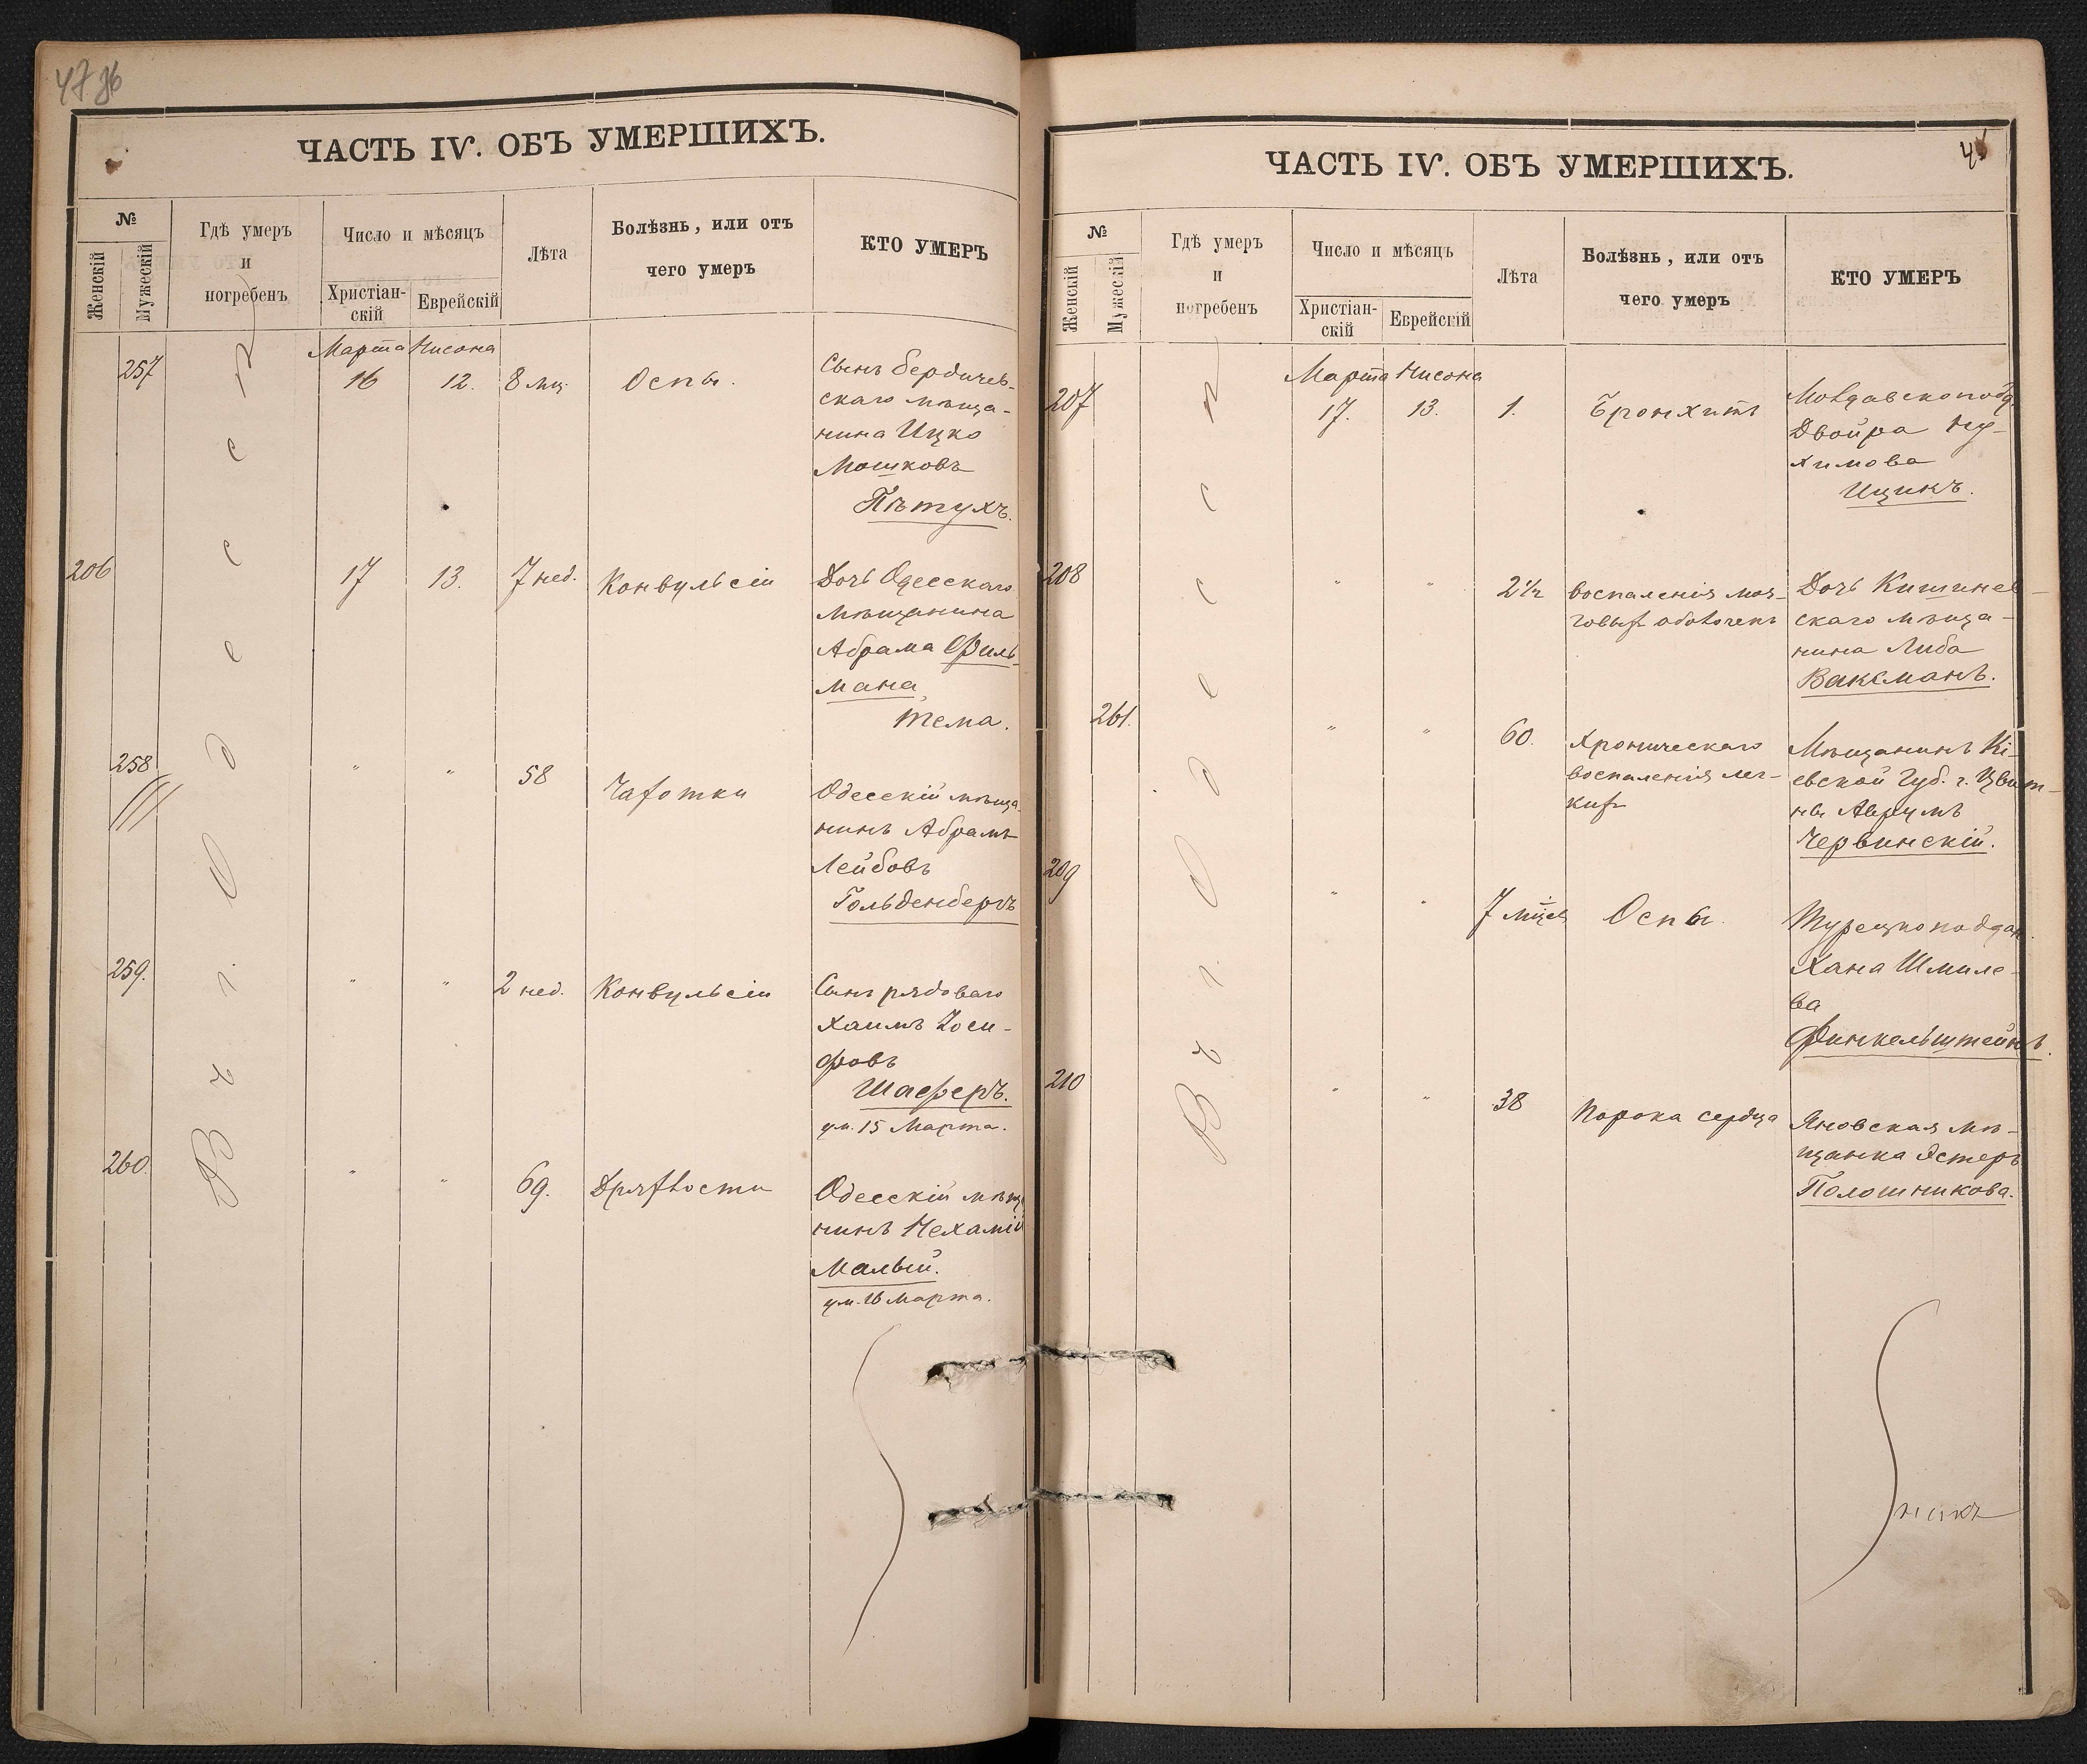 ЧАСТЬ IV. ОБЪ УМЕРШИХЪ.
№
Женскій
Мужескій
Гдѣ умеръ
и
погребенъ
Число и мѣсяцъ
Христіан-
скій
Еврейскій
Лѣта
Болѣзнь, или отъ
чего умеръ
КТО УМЕРЪ
Въ г. Одессѣ
Марта Нисона
257
16
12.
8 мц.
Оспы.
Сынъ Бердичев-
скаго мѣща-
нина Ицко
Мошковъ
Пѣтухъ.
206
17
13.
7 нед.
Конвульсіи
Дочь Одесскаго
мѣщанина
Абрама Филь-
мана,
Тема.
258
"
"
58
Чахотки
Одесскій мѣща-
нинъ Абрамъ
Лейбовъ
Гольденбергъ
259.
"
"
2 нед.
Конвульсіи
Сынъ рядоваго
Хаимъ Іоси-
фовъ
Шаферъ.
ум. 15 Марта.
260.
"
"
69.
Дряхлости
Одесскій мѣща
нинъ Нехамій
Малый.
ум. 16 Марта.
ЧАСТЬ IV. ОБЪ УМЕРШИХЪ.
№
Женскій
Мужескій
Гдѣ умеръ
и
погребенъ
Число и мѣсяцъ
Христіан-
скій
Еврейскій
Лѣта
Болѣзнь, или отъ
чего умеръ
КТО УМЕРЪ
Въ г. Одессѣ
Марта Нисона
207
17.
13.
1.
Бронхитъ
Молдавскопод.
Двойра Ну-
химова
Ицикъ.
208
"
"
2½
воспаленія моз-
говых оболочекъ
Дочь Кишинев-
скаго мѣща-
нина Либа
Ваксманъ.
261.
"
"
60.
Хроническаго
воспаленія лег-
ких
Мѣщанинъ Кі-
евской Губ. г. Цвѣт-
ны Аврумъ
Червинскій.
209
"
"
7 мцев
Оспы.
Турецкоподдан.
Хана Шмиле-
ва
Финкельштейнъ.
210
"
"
38
Порока сердца
Яновская мѣ-
щанка Эстеръ
Полошникова.